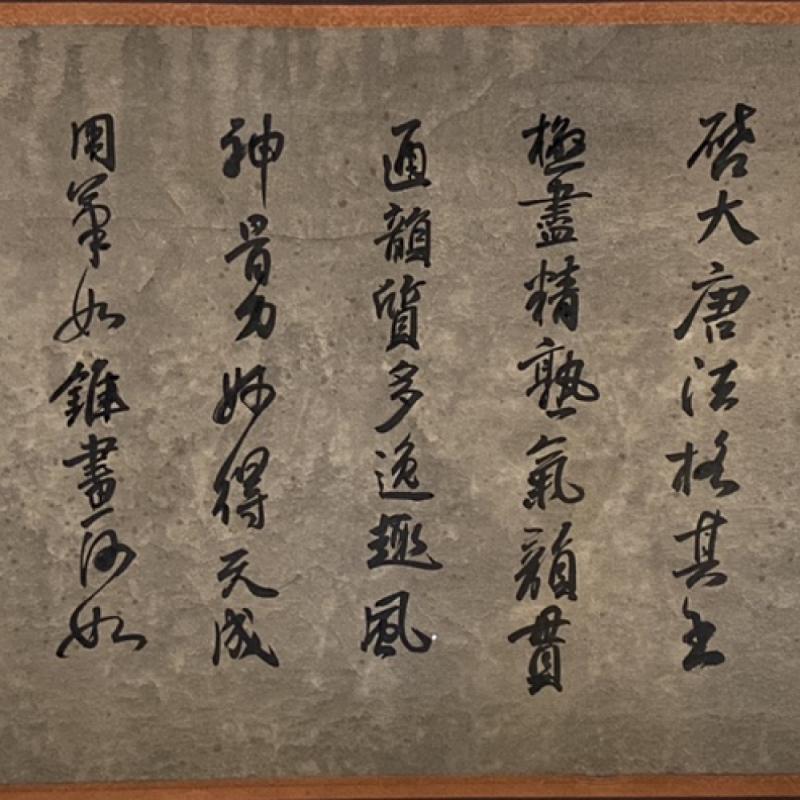 启大唐法格其至
極盡精熟氣韻貫
通韻質多逸趣風
神骨力妙得天成
用筆如錐畫沙如